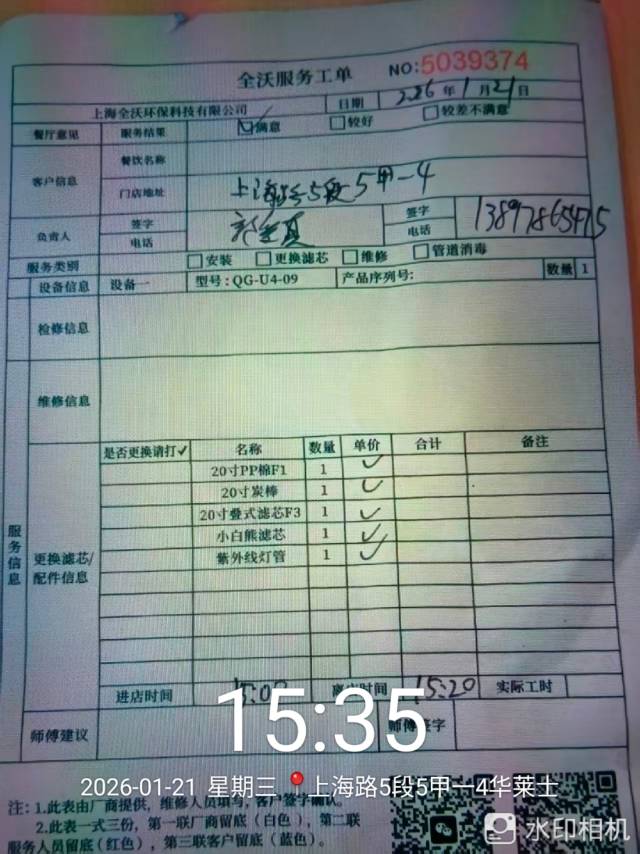 全沃服务工单 NO:5039374
上海全沃环保科技有限公司 日期 2026年1月21日
餐厅意见 服务结果 ☑满意 □较好 □较差不满意
客户信息 餐饮名称
门店地址 上海路5段5甲一4
负责人 签字 电话 签字 电话
服务类别 □安装 □更换滤芯 □维修 □管道消毒
设备信息 设备一 型号:QG-U4-09 产品序列号: 数量 1
检修信息
维修信息
服务信息 更换滤芯/配件信息
是否更换请打✓ 名称 数量 单价 合计 备注
20寸PP棉F1 1 ✓
20寸炭棒 1 ✓
20寸叠式滤芯F3 1 ✓
小白熊滤芯 1 ✓
紫外线灯管 1 ✓
进店时间 15:00 离店时间 15:20 实际工时
师傅建议 师傅签字
15:35
2026-01-21 星期三 📍上海路5段5甲一4华莱士
注: 1.此表由厂商提供, 维修人员填写, 客户签字确认。
2.此表一式三份, 第一联厂商留底(白色), 第二联
服务人员留底(红色), 第三联客户留底(蓝色)。
水印相机